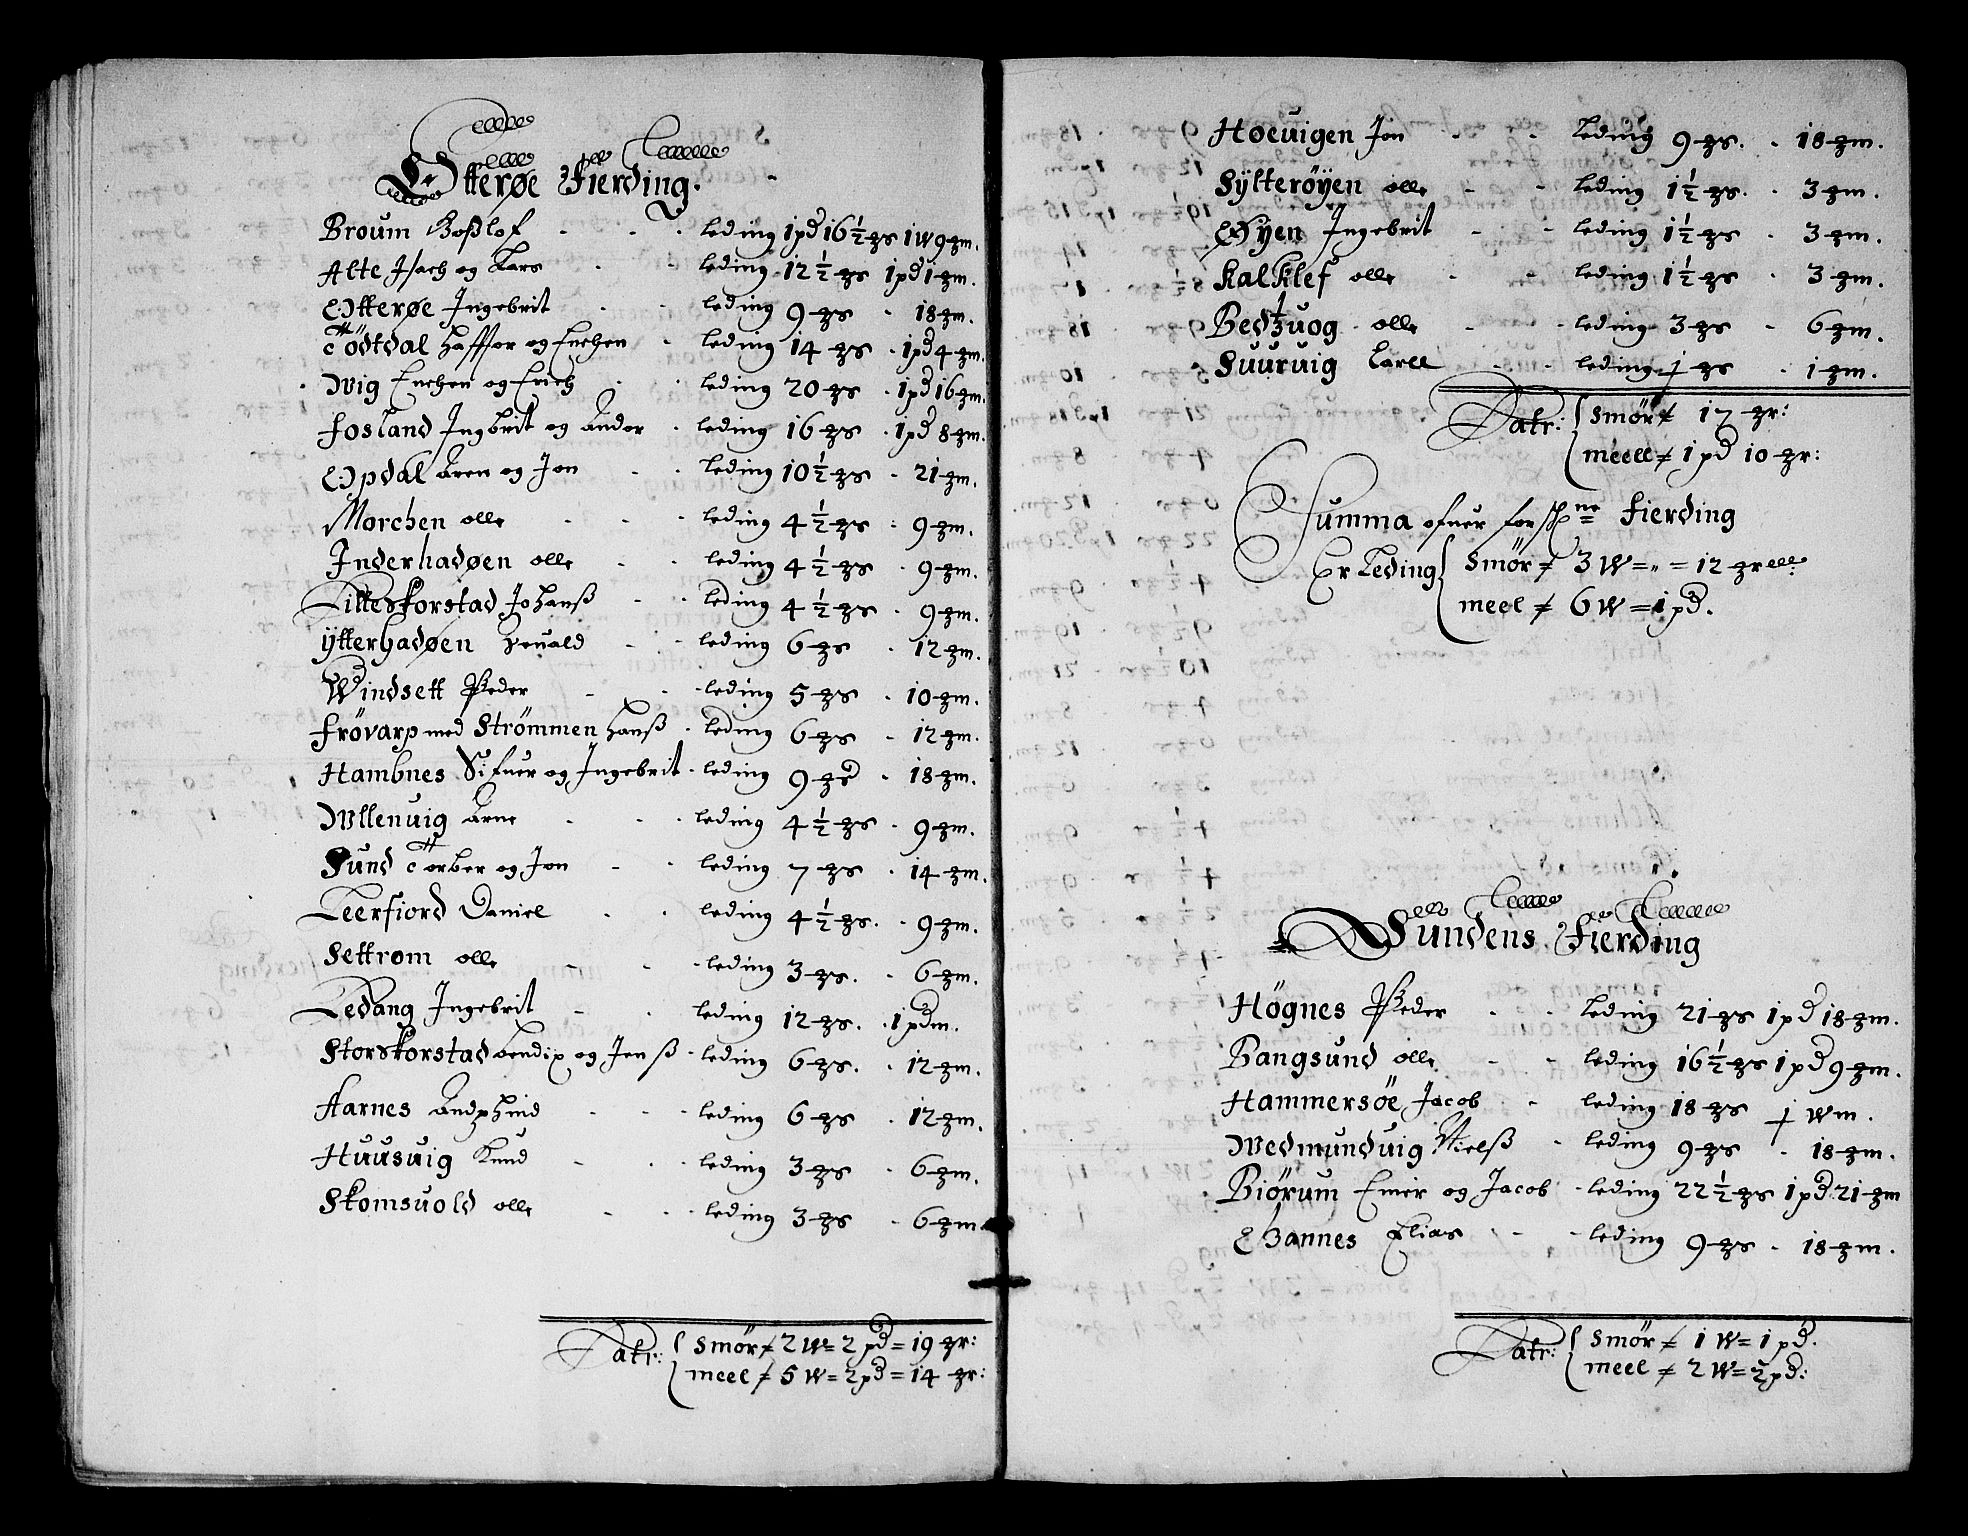 Otterøe Fierding.
Broum Boßlof leding 1 pd 16½ gs 1 W 9 gm.
Alte Isach og Lars leding 12½ gs 1 pd 1 gm.
Otterøe Ingebrit leding 9 gs 18 gm.
Tödtdal Haffor og Enchen leding 14 gs 1 pd 4 gm.
Wig Enchen og Erich leding 20 gs 1 pd 16 gm.
Fosland Ingbrit og Andor leding 16 gs 1 pd 8 gm.
Opdal Aren og Jon leding 10½ gs 21 gm.
Morchen olle leding 4½ gs 9 gm.
Inderhadøen olle leding 4½ gs 9 gm.
Litleskorstad Johanß leding 4½ gs 9 gm.
Ytterhadøen leding 6 gs 12 gm.
Windsett Peder leding 5 gs 10 gm.
Frövarp med Strömmen Hanß leding 6 gs 12 gm.
Hambnes Sifuer og Ingebrit leding 9 gs 18 gm.
Wllenuig Arne leding 4½ gs 9 gm.
Sund Torber og Jon leding 7 gs 14 gm.
Leerfiord Daniel leding 4½ gs. 9 gm.
Settrom olle leding 3 gs. 6 gm.
Ledang Ingebrit leding 12 gs. 1 pd m.
Storskorstad Bendix og Jenß leding 6 gs. 12 gm.
Aarnes leding 6 gs 12 gm.
Huusuig Knud leding 3 gs 6 gm.
Skomsuold olle leding 3 gs 6 gm
Latr: Smör 2 W = 2 pd = 19 gr:
meel 5 W = 2 pd = 14 gr:
Hoeuigen Jon leding 9 gs. 18 gm.
Sylterøyen olle leding 1½ gs. 3 gm.
Øyen Ingebrit leding 1½ gs 3 gm.
Kalklef olle leding 1½ gs 3 gm.
olle leding 3 gs 6 gm.
Suuruig Carll leding 1 gs 1 gm.
Latr: Smör 17 gr:
meell 1 pd 10 gr:
Summa ofuer forsch ne Fierding
Er Leding Smör 3 W = „ = 12 gr
meel 6 W = 1 pd.
Sundens Fierding
Högnes Peder leding 21 gs 1 pd 18 gm.
Bangsund olle leding 16½ gs 1 pd 9 gm.
Hammersöe Jacob leding 18 gs 1 W m.
Wedmunduig Nielß leding 9 gs 18 gm.
Biörum Emer og Jacob leding 22½ gs 1 pd 21 gm
Bannes Elias leding 9 gs 18 gm.
Latr: Smör 1 W = 1 pd.
meel 2 W = 2 pd: